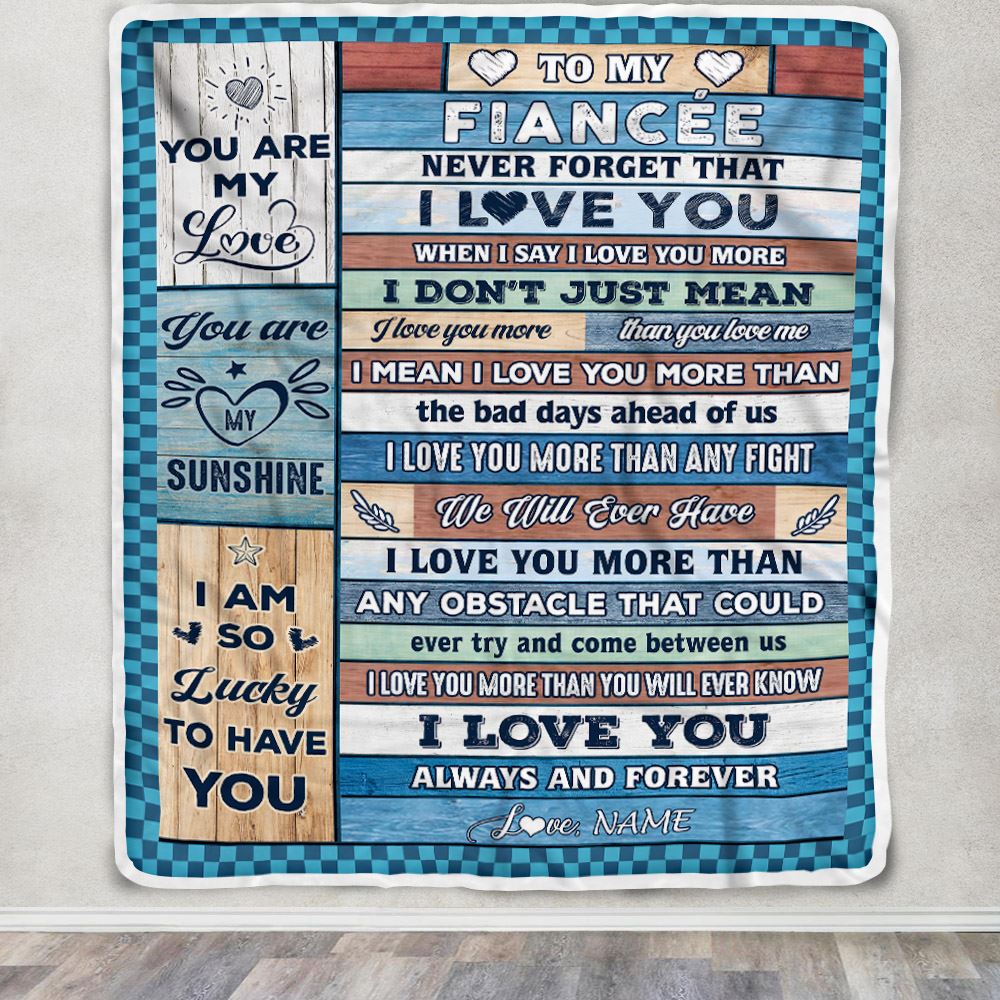 YOU ARE
MY
Love
You are
MY
SUNSHINE
I AM
SO
Lucky
TO HAVE
YOU
TO MY
FIANCÉE
NEVER FORGET THAT
I LOVE YOU
WHEN I SAY I LOVE YOU MORE
I DON'T JUST MEAN
I love you more than you love me
I MEAN I LOVE YOU MORE THAN
the bad days ahead of us
I LOVE YOU MORE THAN ANY FIGHT
We Will Ever Have
I LOVE YOU MORE THAN
ANY OBSTACLE THAT COULD
ever try and come between us
I LOVE YOU MORE THAN YOU WILL EVER KNOW
I LOVE YOU
ALWAYS AND FOREVER
Love, NAME